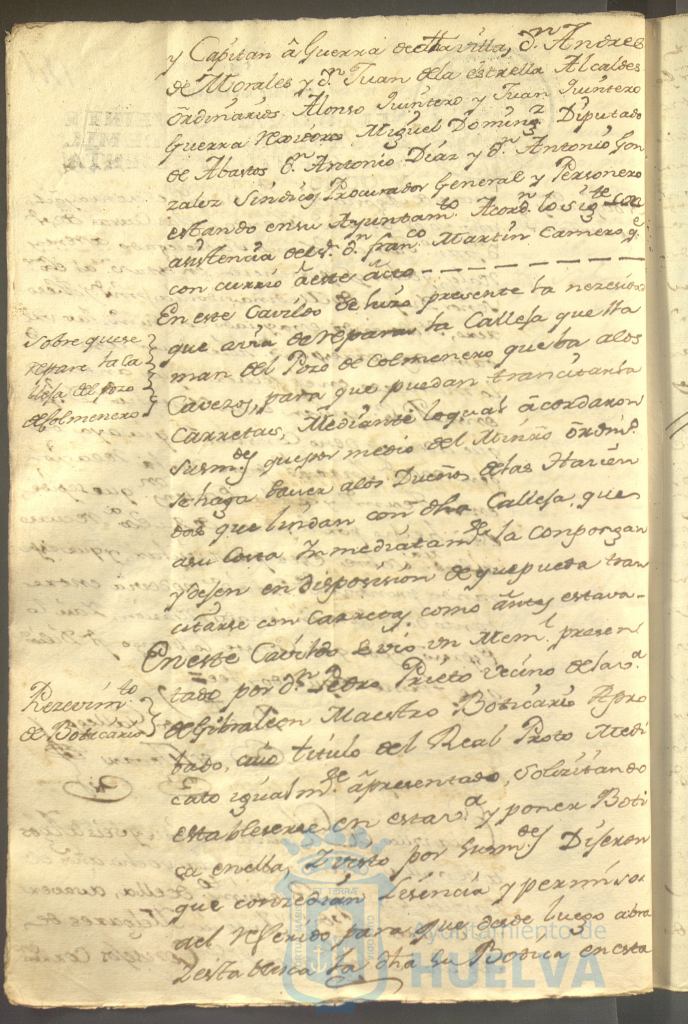 y Capitan â Guerra de esta villa, dn. Andres
de Morales y dn. Juan de la estrella Alcaldes
ôrdinarios Alonso Quintero y Juan Quintero
Guerra Rexidores Miguel Doming.z Diputado
de Abastos dn. Antonio Diaz y dn. Antonio Gon
zalez Sindico Procurador General y Personero
estando en su Ayuntamto. Acordn. lo sigte. con
asistencia del sr. dn. franco. Martin Carnero, qe.
con currió â este âcto
En este Cavildo se hizo presente la nesesidad
que avia de reparar la Calleja que lla
man del Pozo de Colmenero que ba a los
Cavezos, para que puedan trancitar la
Carretas, Mediante lo qual âcordaron
sus mds. que por medio del Minro. ôrdino.
se haga saver a los Dueños de las Hacien
das que lindan con dha Calleja, que
a su Costa Inmediatamte. la Conpongan
y dejen en disposision de que pueda tran
citarse con Carretas como ântes estava
Sobre que se
repare la ca
lleja del pozo
de Colmenero
En este Cavildo se vio un Meml. presen
tado por dn. Pedro Prieto vecino de la va.
de Gibraleon Maestro Boticario Apro
bado, cuio titulo del Real Proto Medi
cato igualmte. â presentado, solizitando
establecerse en esta va. y poner Boti
ca en ella, Y visto por sus mds. Dijeron
que consedian Lesencia y permiso
al referido para que desde luego abra
y establesca la dha su Botica en esta
Rezevimto.
de Boticario
Ayuntamiento de
HUELVA